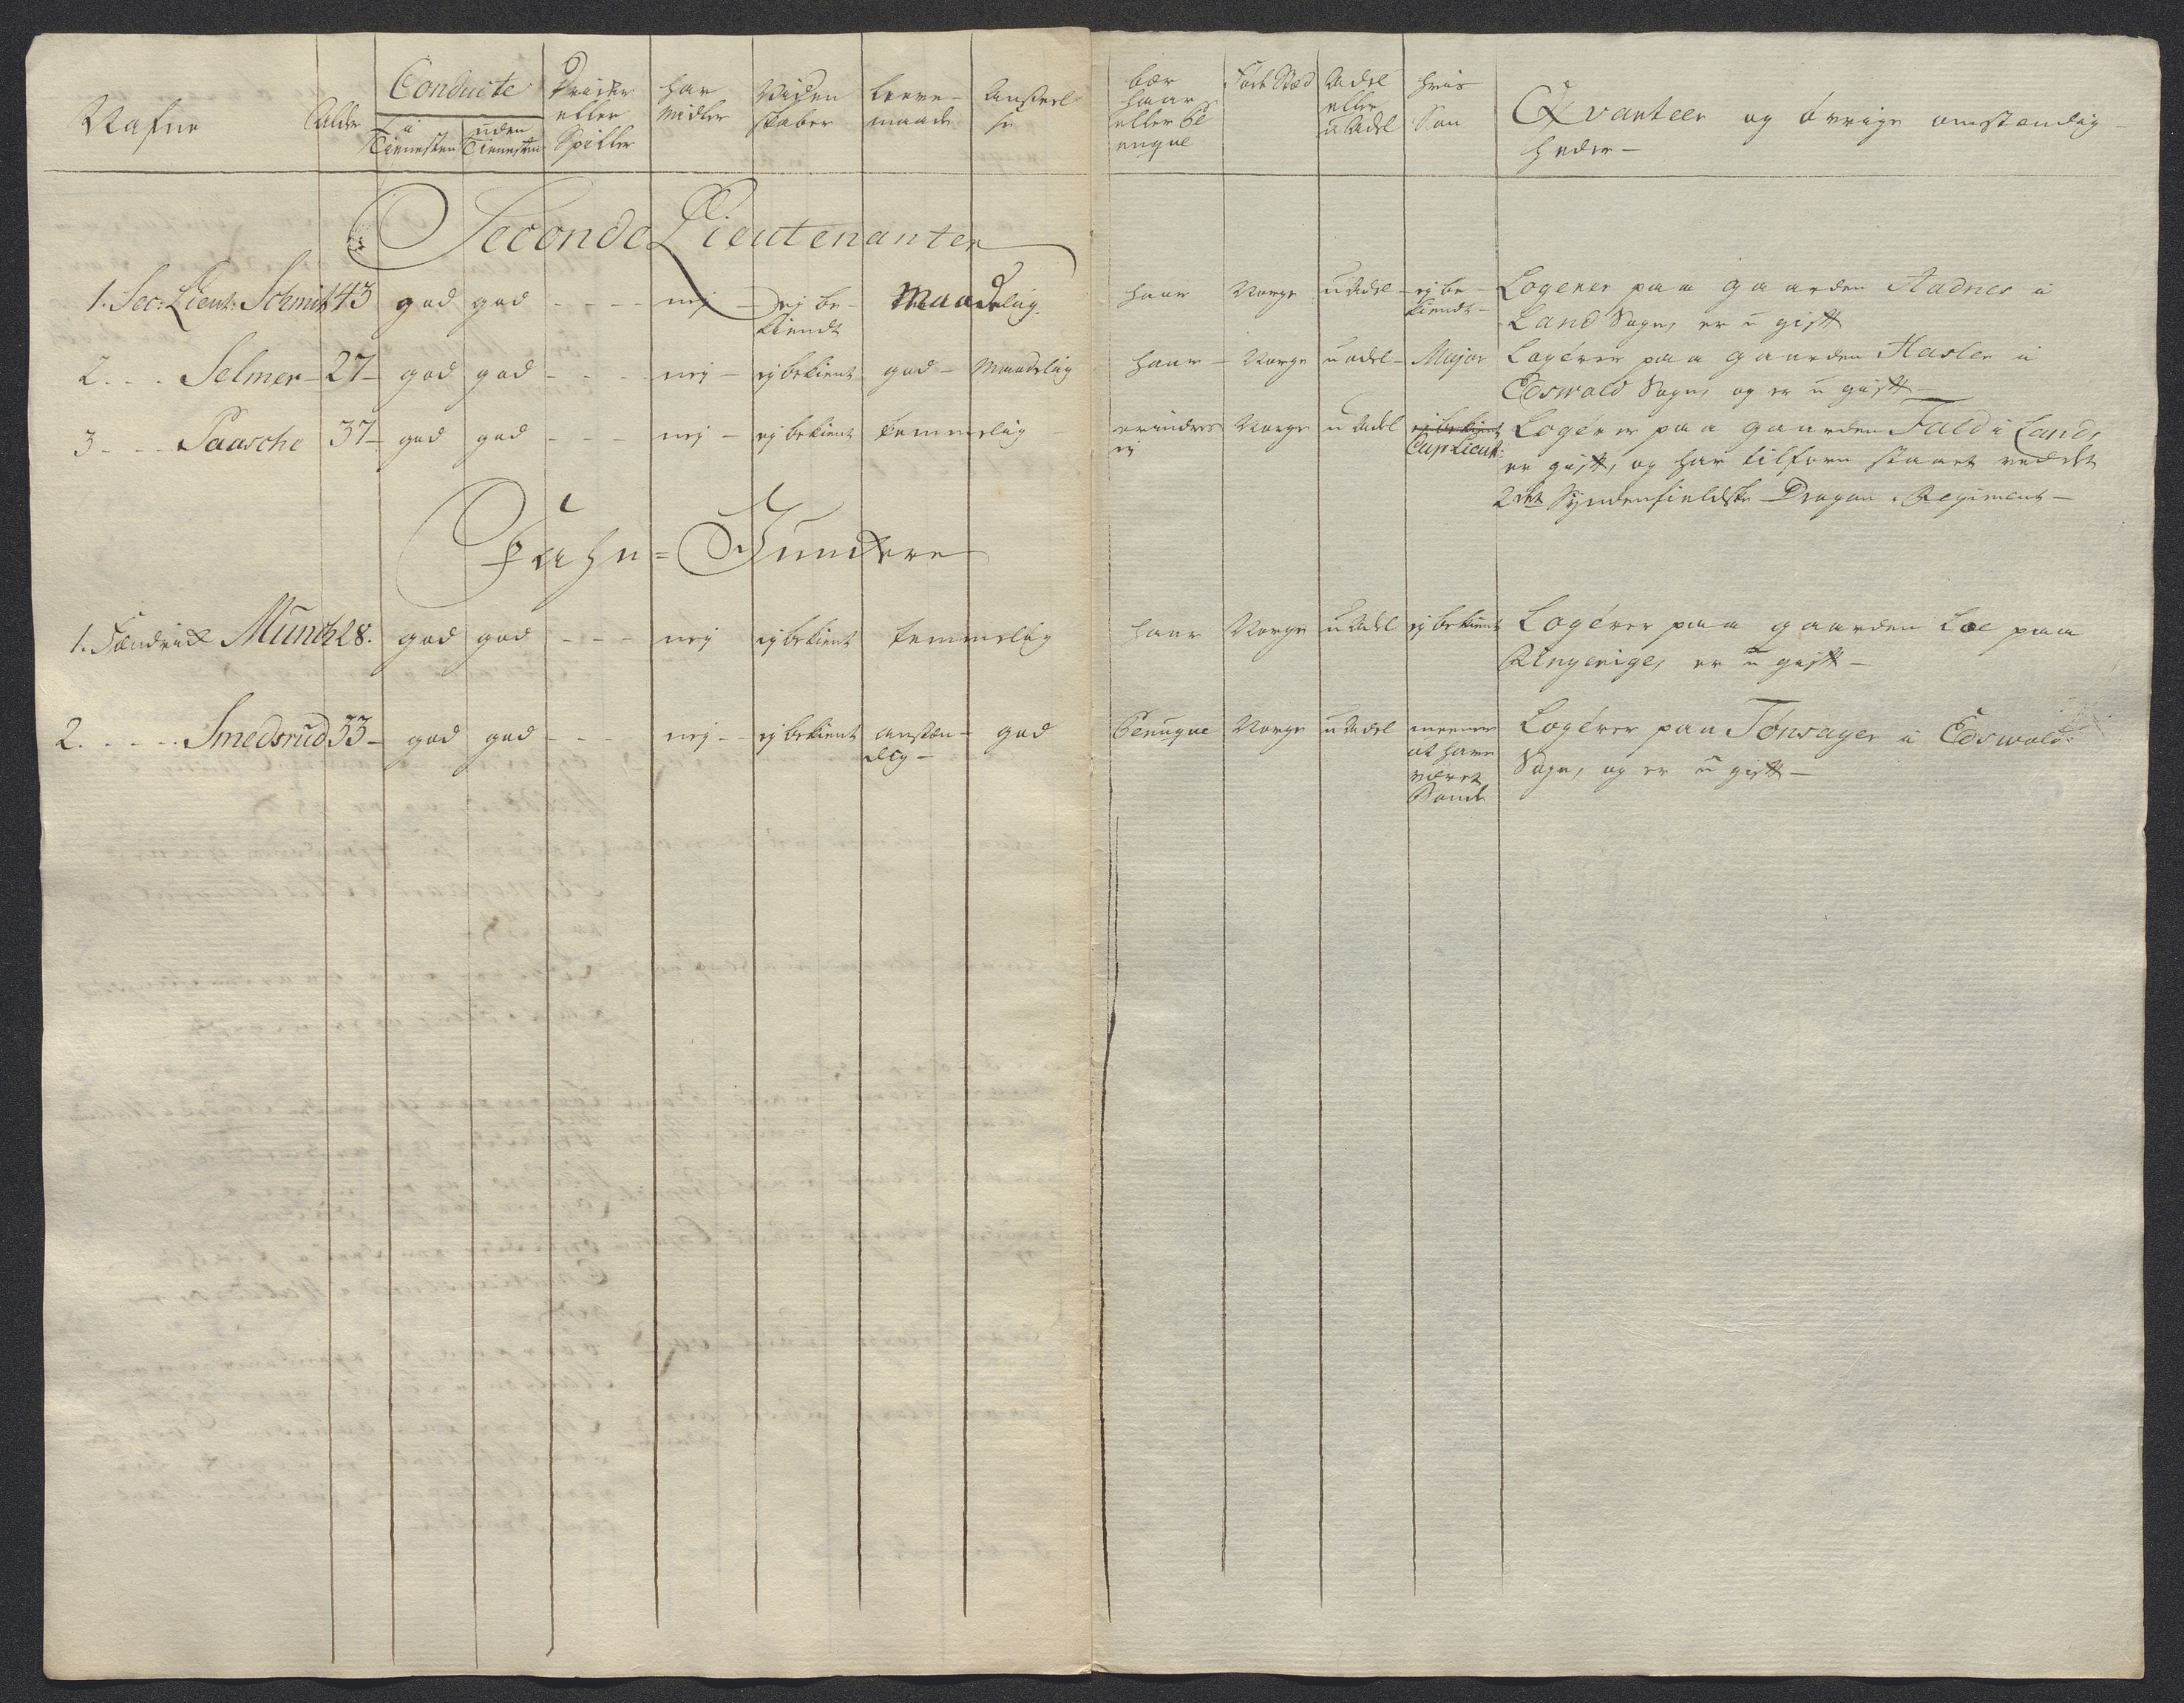 Nafne Alder Conduite i Tienesten uden Tienesten Dricker eller Spiller har Midler Viden skaber Leve- maade Ansteel se bær haar eller Pe ruque Føde Stæd Adel eller u Adel hvis Søn Qvarteer og øvrige omstændig- heder -
Seconde Lieutenanter
1. Sec: Lieut: Schmit 43 god god - - - - nej - ej be- kiendt Maadelig. haar Norge u Adel - ej be- kiendt - Logerer paa gaarden Aadnes i
Land Sogn, er u gift
2 . . . Selmer - 27 - god god - - - nej - ej bekient god - Maadelig haar - Norge u adel - Major Logérer paa gaarden Hasler i
Edswold Sogn, og er u gift -
3 - - . Paasche 37 - god god - - - nej - ej bekient temmelig erindres ej Norge u Adel ej bekient Cap Lieut: Logérer paa gaarden Fald i Land,
er gift, og har tilforn staaet ved det
2det Syndenfieldske Dragon Regiment -
Fahn=Junckere
1. Fændrick Münch 28. god god - - - nej ej bekient temmelig haar Norge u Adel ej bekient Logérer paa gaarden Loe paa
Ringerige, er u gift -
2. . . . . Smedsrud 33 - god god - - - nej - - ej bekient anstæn- dig - god Peruque Norge u Adel meener at have været Bonde Logérer paa Tönsager i Edswold:
Sogn, og er u gift -